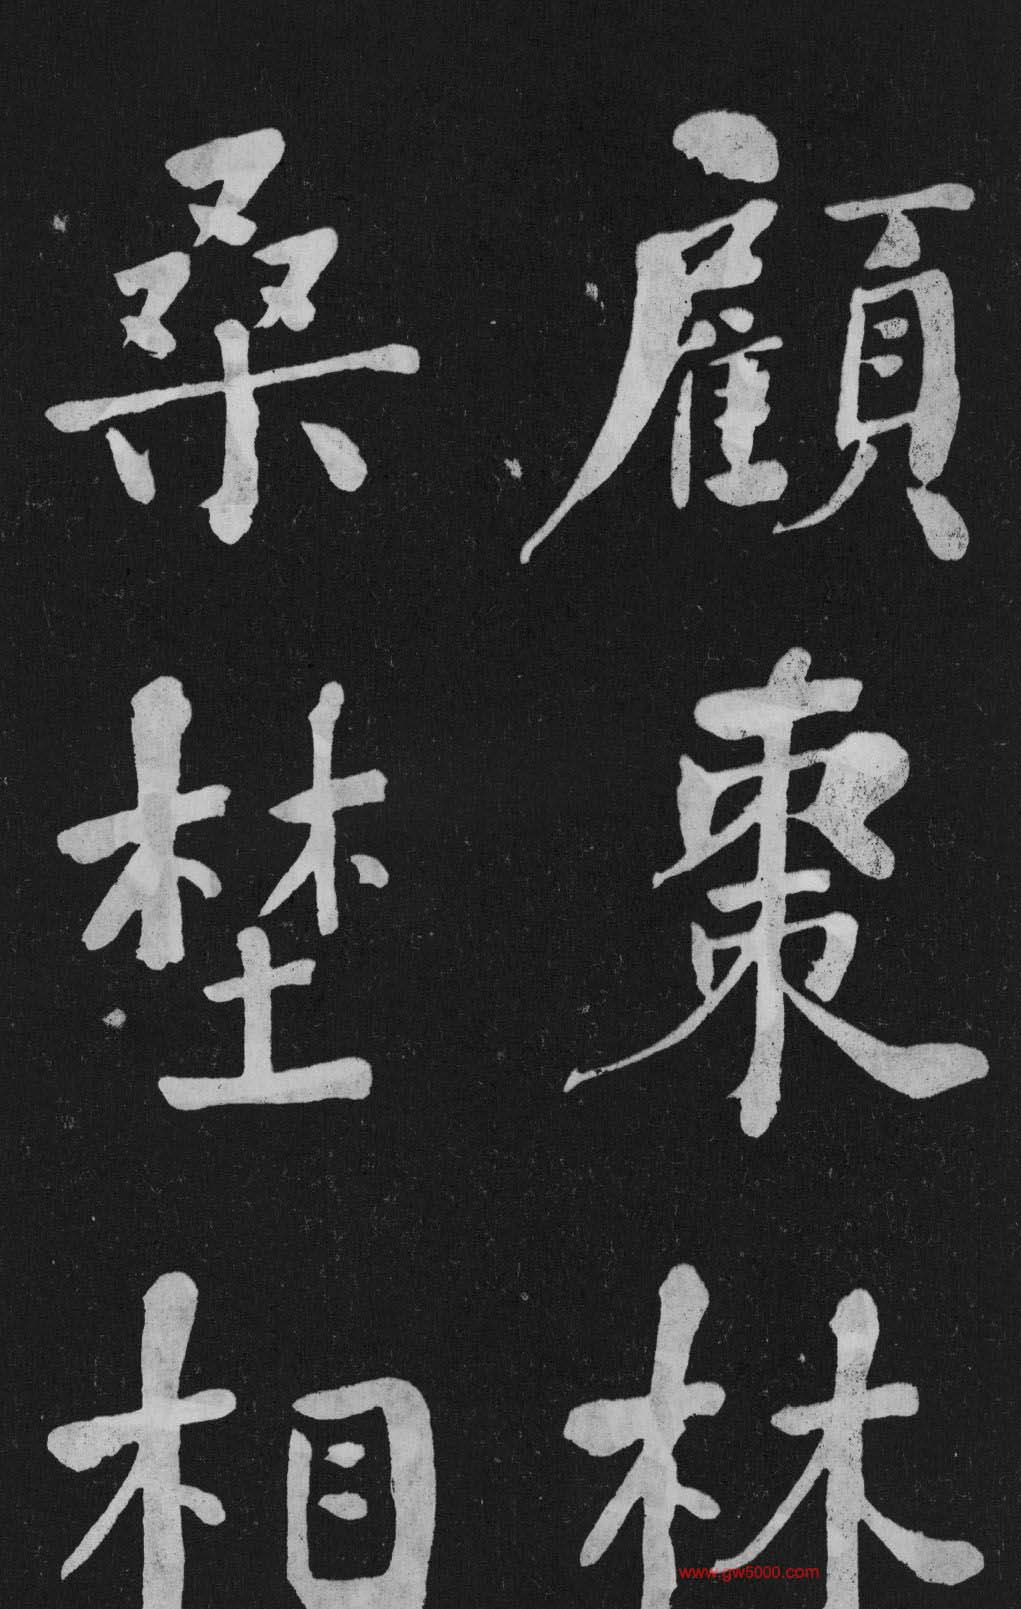 顧棗林
桑埜相
www.gw5000.com